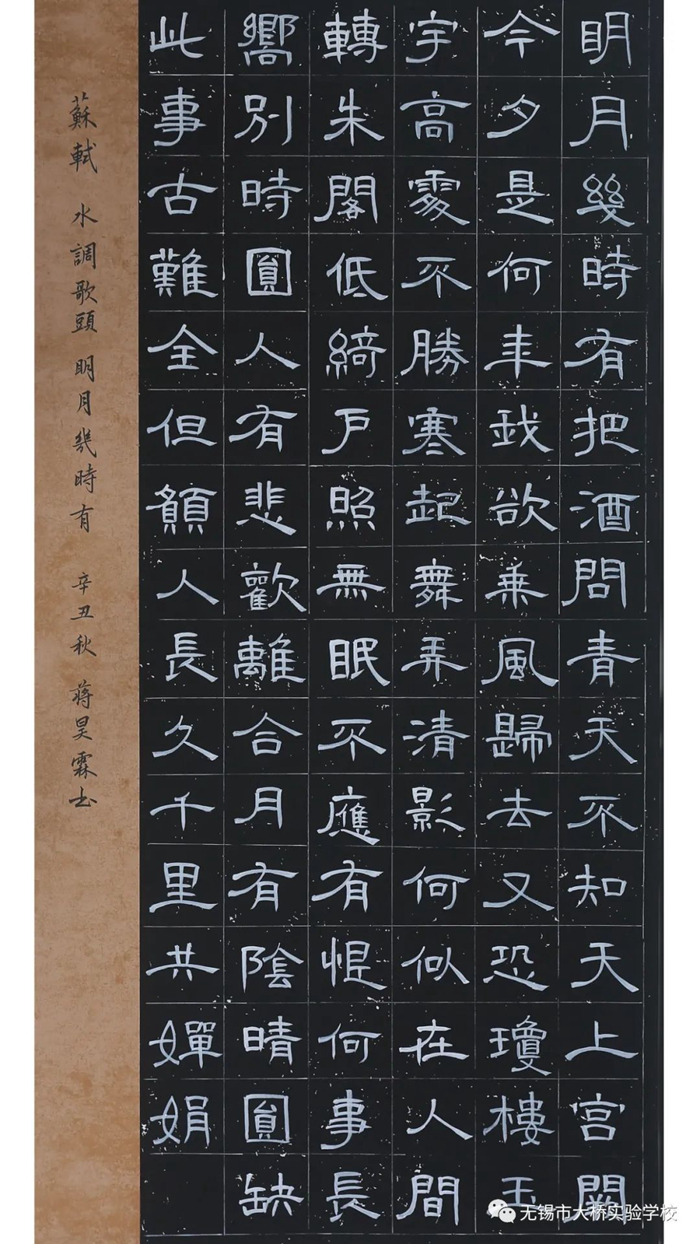 明月幾時有把酒問青天不知天上宮闕
今夕是何年我欲乘風歸去又恐瓊樓玉
宇高處不勝寒起舞弄清影何似在人間
轉朱閣低綺戶照無眠不應有恨何事長
嚮別時圓人有悲歡離合月有陰晴圓缺
此事古難全但願人長久千里共嬋娟
蘇軾 水調歌頭 明月幾時有 辛丑秋 蔣昊霖书
无锡市大桥实验学校